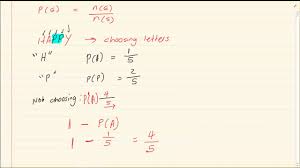 P(a) = n(a) / n(s)
HAPPY → choosing letters
"H" P(H) = 1/5
"P" P(P) = 2/5
Not choosing: P(A) 4/5
1 - P(A)
1 - 1/5 = 4/5